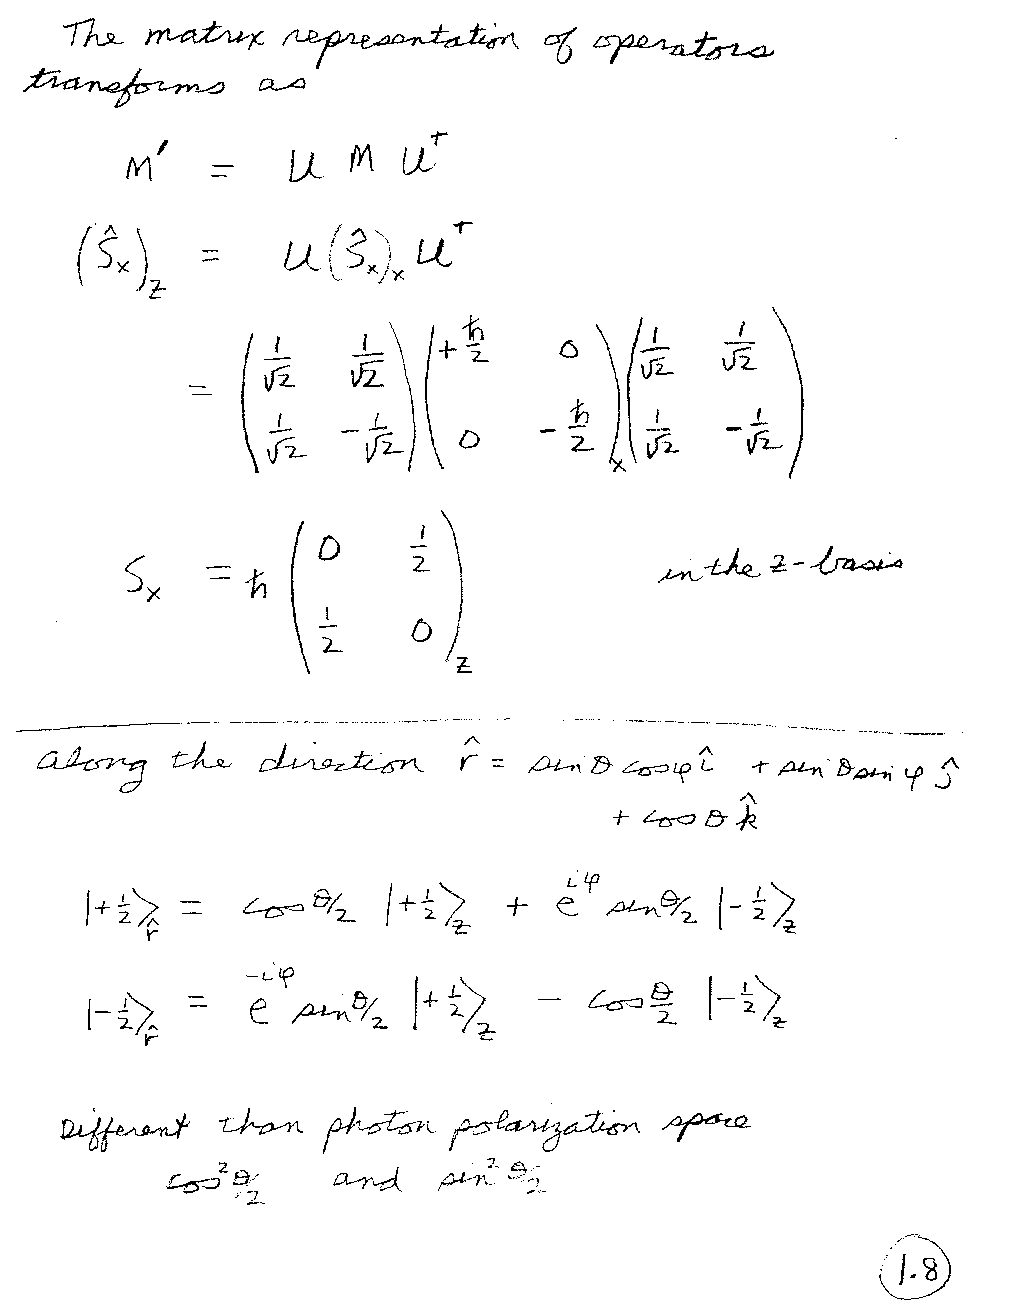 The matrix representation of operators
transforms as
M′ = U M U†
(Ŝx)z = U (Ŝx)x U†
= (1/√2 1/√2; 1/√2 -1/√2) (+ħ/2 0; 0 -ħ/2)x (1/√2 1/√2; 1/√2 -1/√2)
Sx = ħ (0 1/2; 1/2 0)z in the z-basis
along the direction r̂ = sinθ cosφ î + sinθ sinφ ĵ
+ cosθ k̂
|+1/2⟩r̂ = cos θ/2 |+1/2⟩z + e^{iφ} sin θ/2 |-1/2⟩z
|-1/2⟩r̂ = e^{-iφ} sin θ/2 |+1/2⟩z - cos θ/2 |-1/2⟩z
Different than photon polarization space
cos² θ/2 and sin² θ/2
1.8